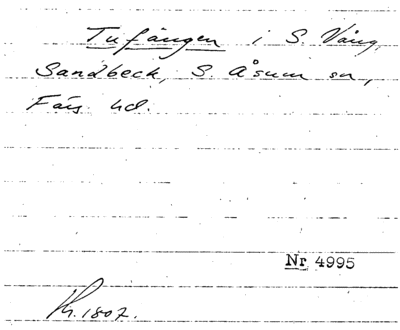 Tufången i S. Vång,
Sandbeck, S. Åsum sn,
Färs hd.
Nr 4995
Kh. 1807.